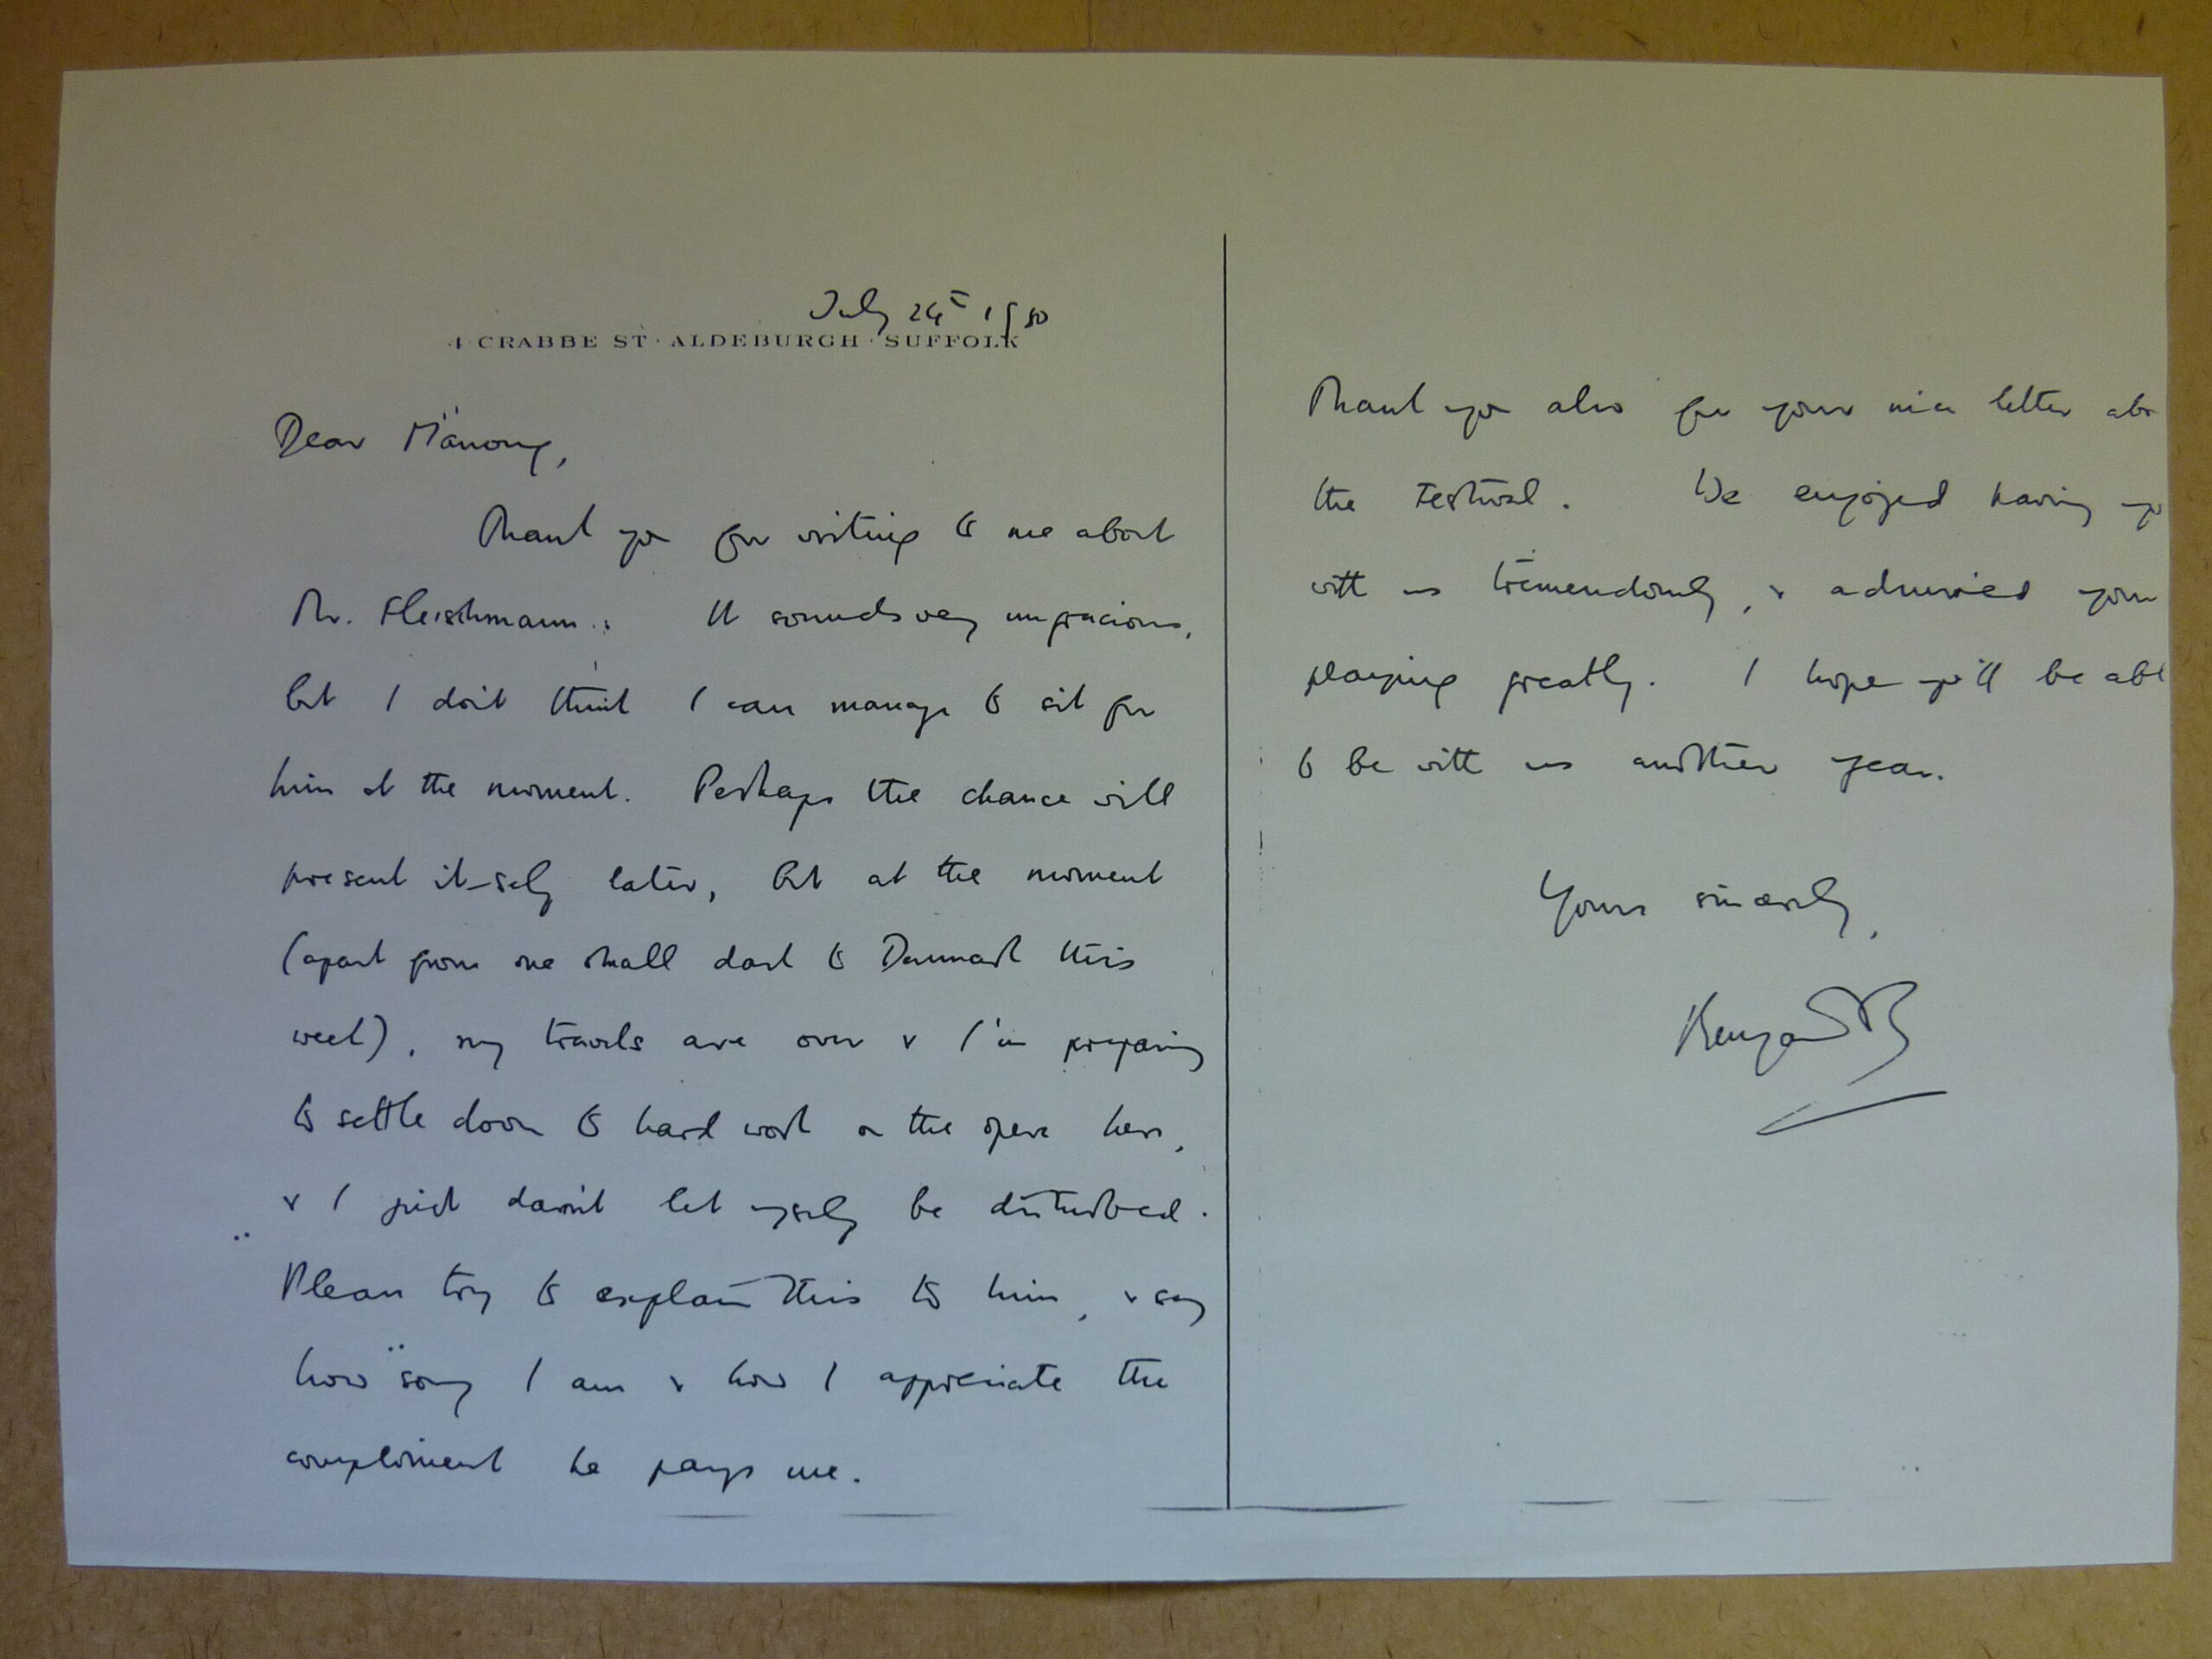 July 24th 1950
4 CRABBE ST · ALDEBURGH · SUFFOLK
Dear Manoug,
Thank you for writing to me about
Mr. Fleischmann. It sounds very ungracious,
but I don't think I can manage to sit for
him at the moment. Perhaps the chance will
present it-self later, but at the moment
(apart from one small dash to Denmark this
week), my travels are over & I'm preparing
to settle down to hard work on the opera here,
& I just daren't let myself be disturbed.
Please try to explain this to him, & say
how sorry I am & how I appreciate the
compliment he pays me.
Thank you also for your nice letter abo
the Festival. We enjoyed having yo
with us tremendously, & admired your
playing greatly. I hope you'll be abl
to be with us another year.
Yours sincerely,
Benjamin B